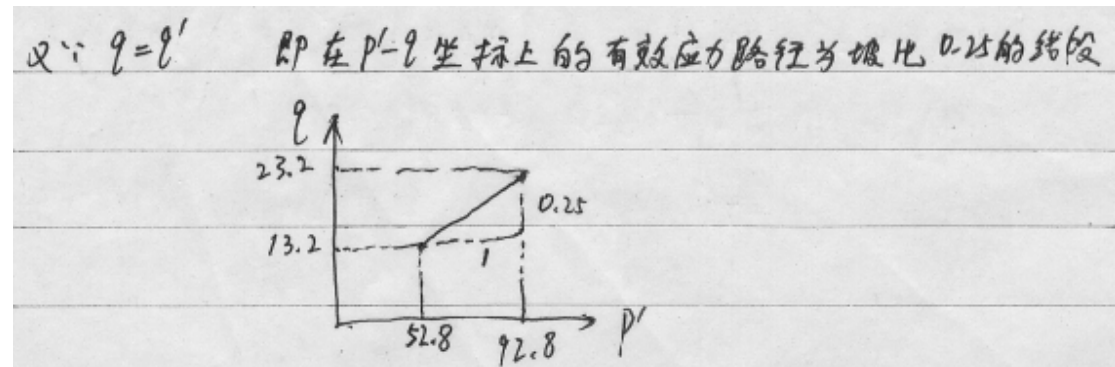 又∵ q=q′ 即在p′-q坐标上的有效应力路径为坡比0.25的线段
q
23.2
0.25
13.2
1
52.8
92.8
p′